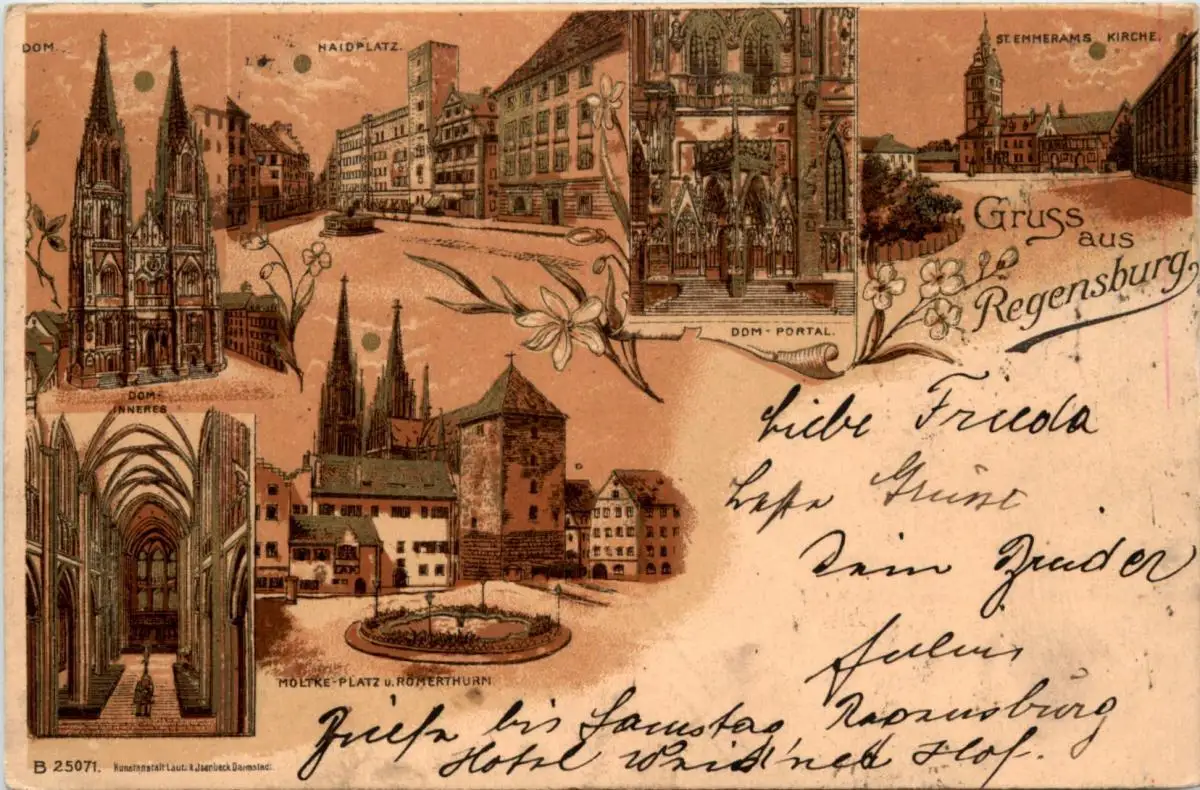 DOM.
HAIDPLATZ.
ST. EMMERAMS KIRCHE.
Gruss
aus
Regensburg.
DOM-PORTAL.
DOM-
INNERES
Liebe Frieda
beste Grüsse
Dein Bruder
Julius
MOLTKE-PLATZ u. RÖMERTHURM
Briefe bis Samstag Regensburg
Hotel Hof.
B 25071. Kunstanstalt Lautz & Jsenbeck Darmstadt.